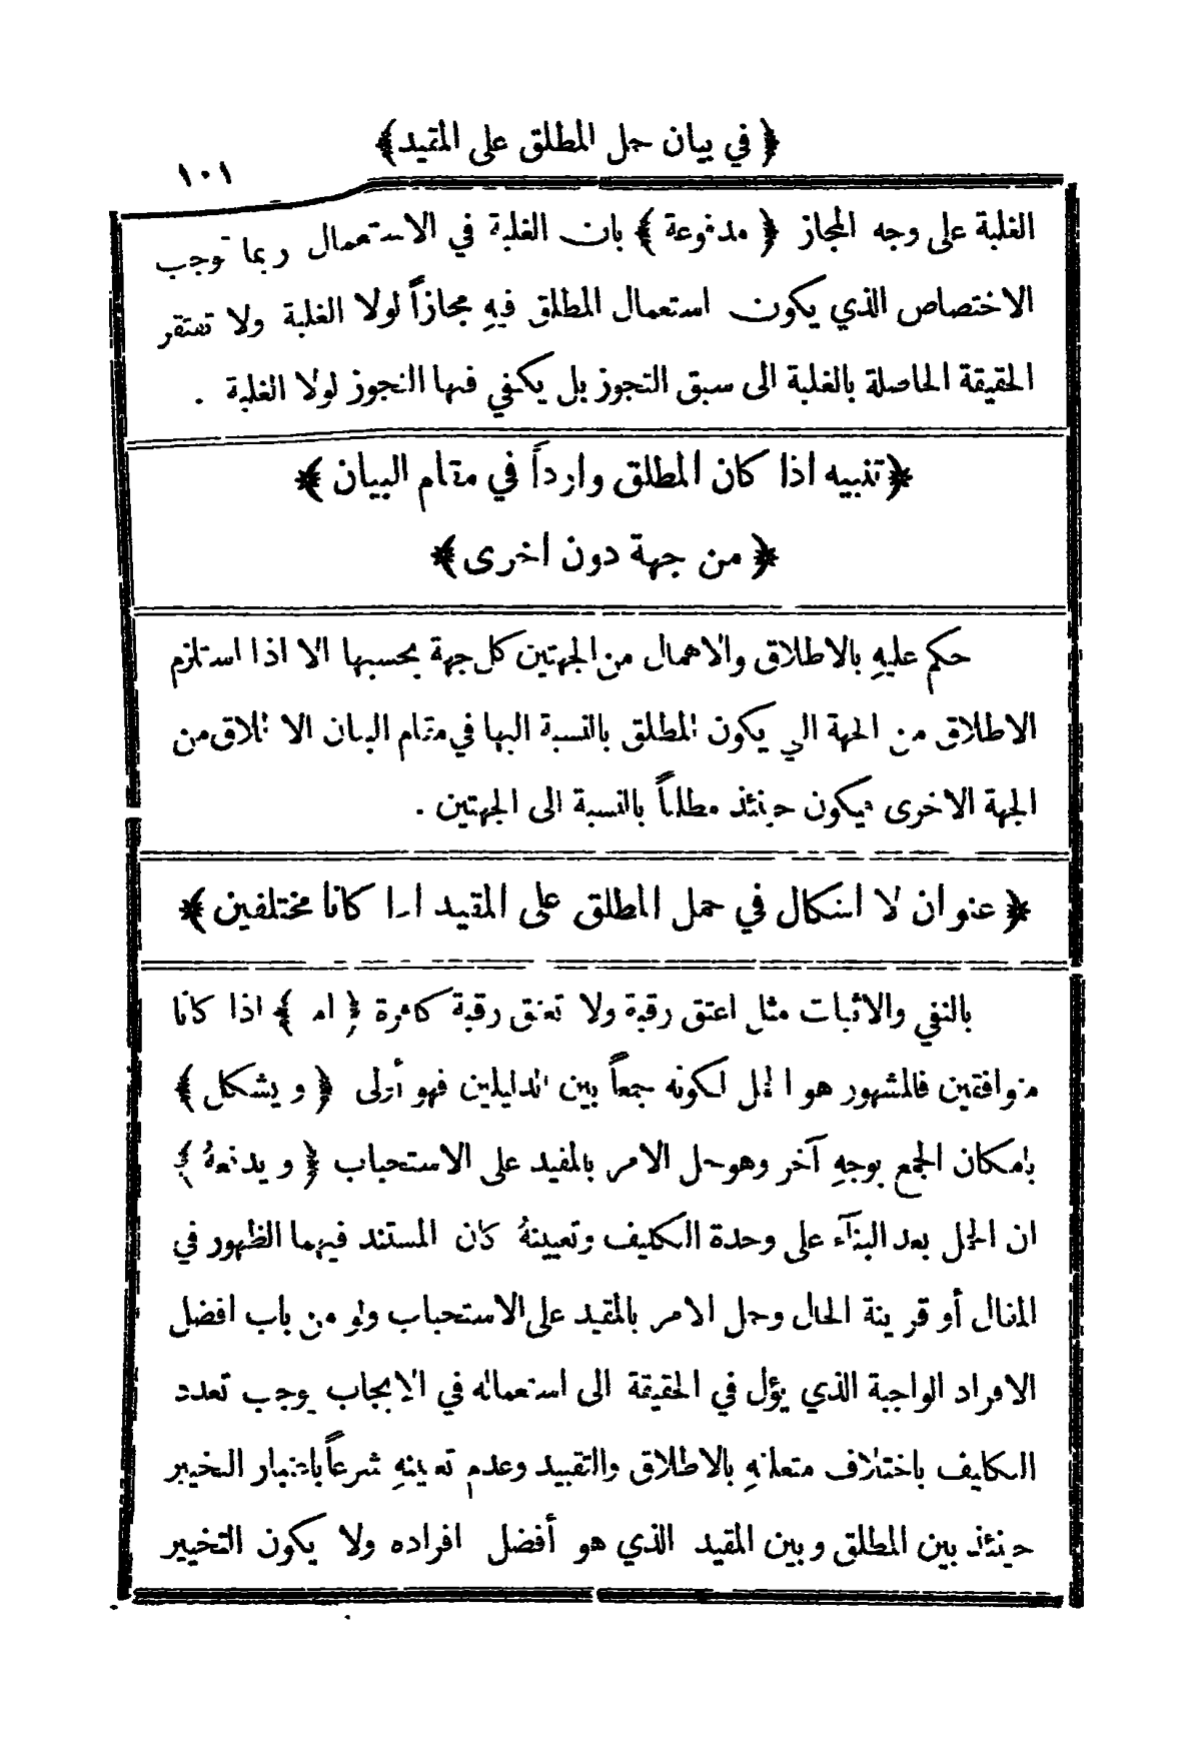 ﴿ في بيان حمل المطلق على المقيد ﴾
١٠١
الغلبة على وجه المجاز ﴿ مدفوعة ﴾ بان الغلبة في الاستعمال ربما توجب
الاختصاص الذي يكون استعمال المطلق فيهِ مجازاً لولا الغلبة ولا تستقر
الحقيقة الحاصلة بالغلبة الى سبق التجوز بل يكفي فيها التجوز لولا الغلبة .
﴿ تنبيه اذا كان المطلق وارداً في مقام البيان ﴾
﴿ من جهة دون اخرى ﴾
حكم عليهِ بالاطلاق والاهمال من الجهتين كل جهة بحسبها الا اذا استلزم
الاطلاق من الجهة التي يكون المطلق بالنسبة اليها في مقام البيان الاطلاق من
الجهة الاخرى فيكون حينئذ مطلقاً بالنسبة الى الجهتين .
﴿ عنوان لا اشكال في حمل المطلق على المقيد اذا كانا مختلفين ﴾
بالنفي والاثبات مثل اعتق رقبة ولا تعتق رقبة كافرة ﴿ اما ﴾ اذا كانا
متوافقين فالمشهور هو الحمل لكونه جمعاً بين الدليلين فهو أولى ﴿ ويشكل ﴾
بامكان الجمع بوجهِ آخر وهو حمل الامر بالمقيد على الاستحباب ﴿ ويدفعهُ ﴾
ان الحمل بعد البنآء على وحدة التكليف وتعيينهُ كان المستند فيهما الظهور في
المثال أو قرينة الحال وحمل الامر بالمقيد على الاستحباب ولو من باب افضل
الافراد الواجبة الذي يؤل في الحقيقة الى استعماله في الايجاب يوجب تعدد
التكليف باختلاف متعلقهِ بالاطلاق والتقييد وعدم تعيينهِ شرعاً باعتبار التخيير
حينئذ بين المطلق وبين المقيد الذي هو أفضل افراده ولا يكون التخيير